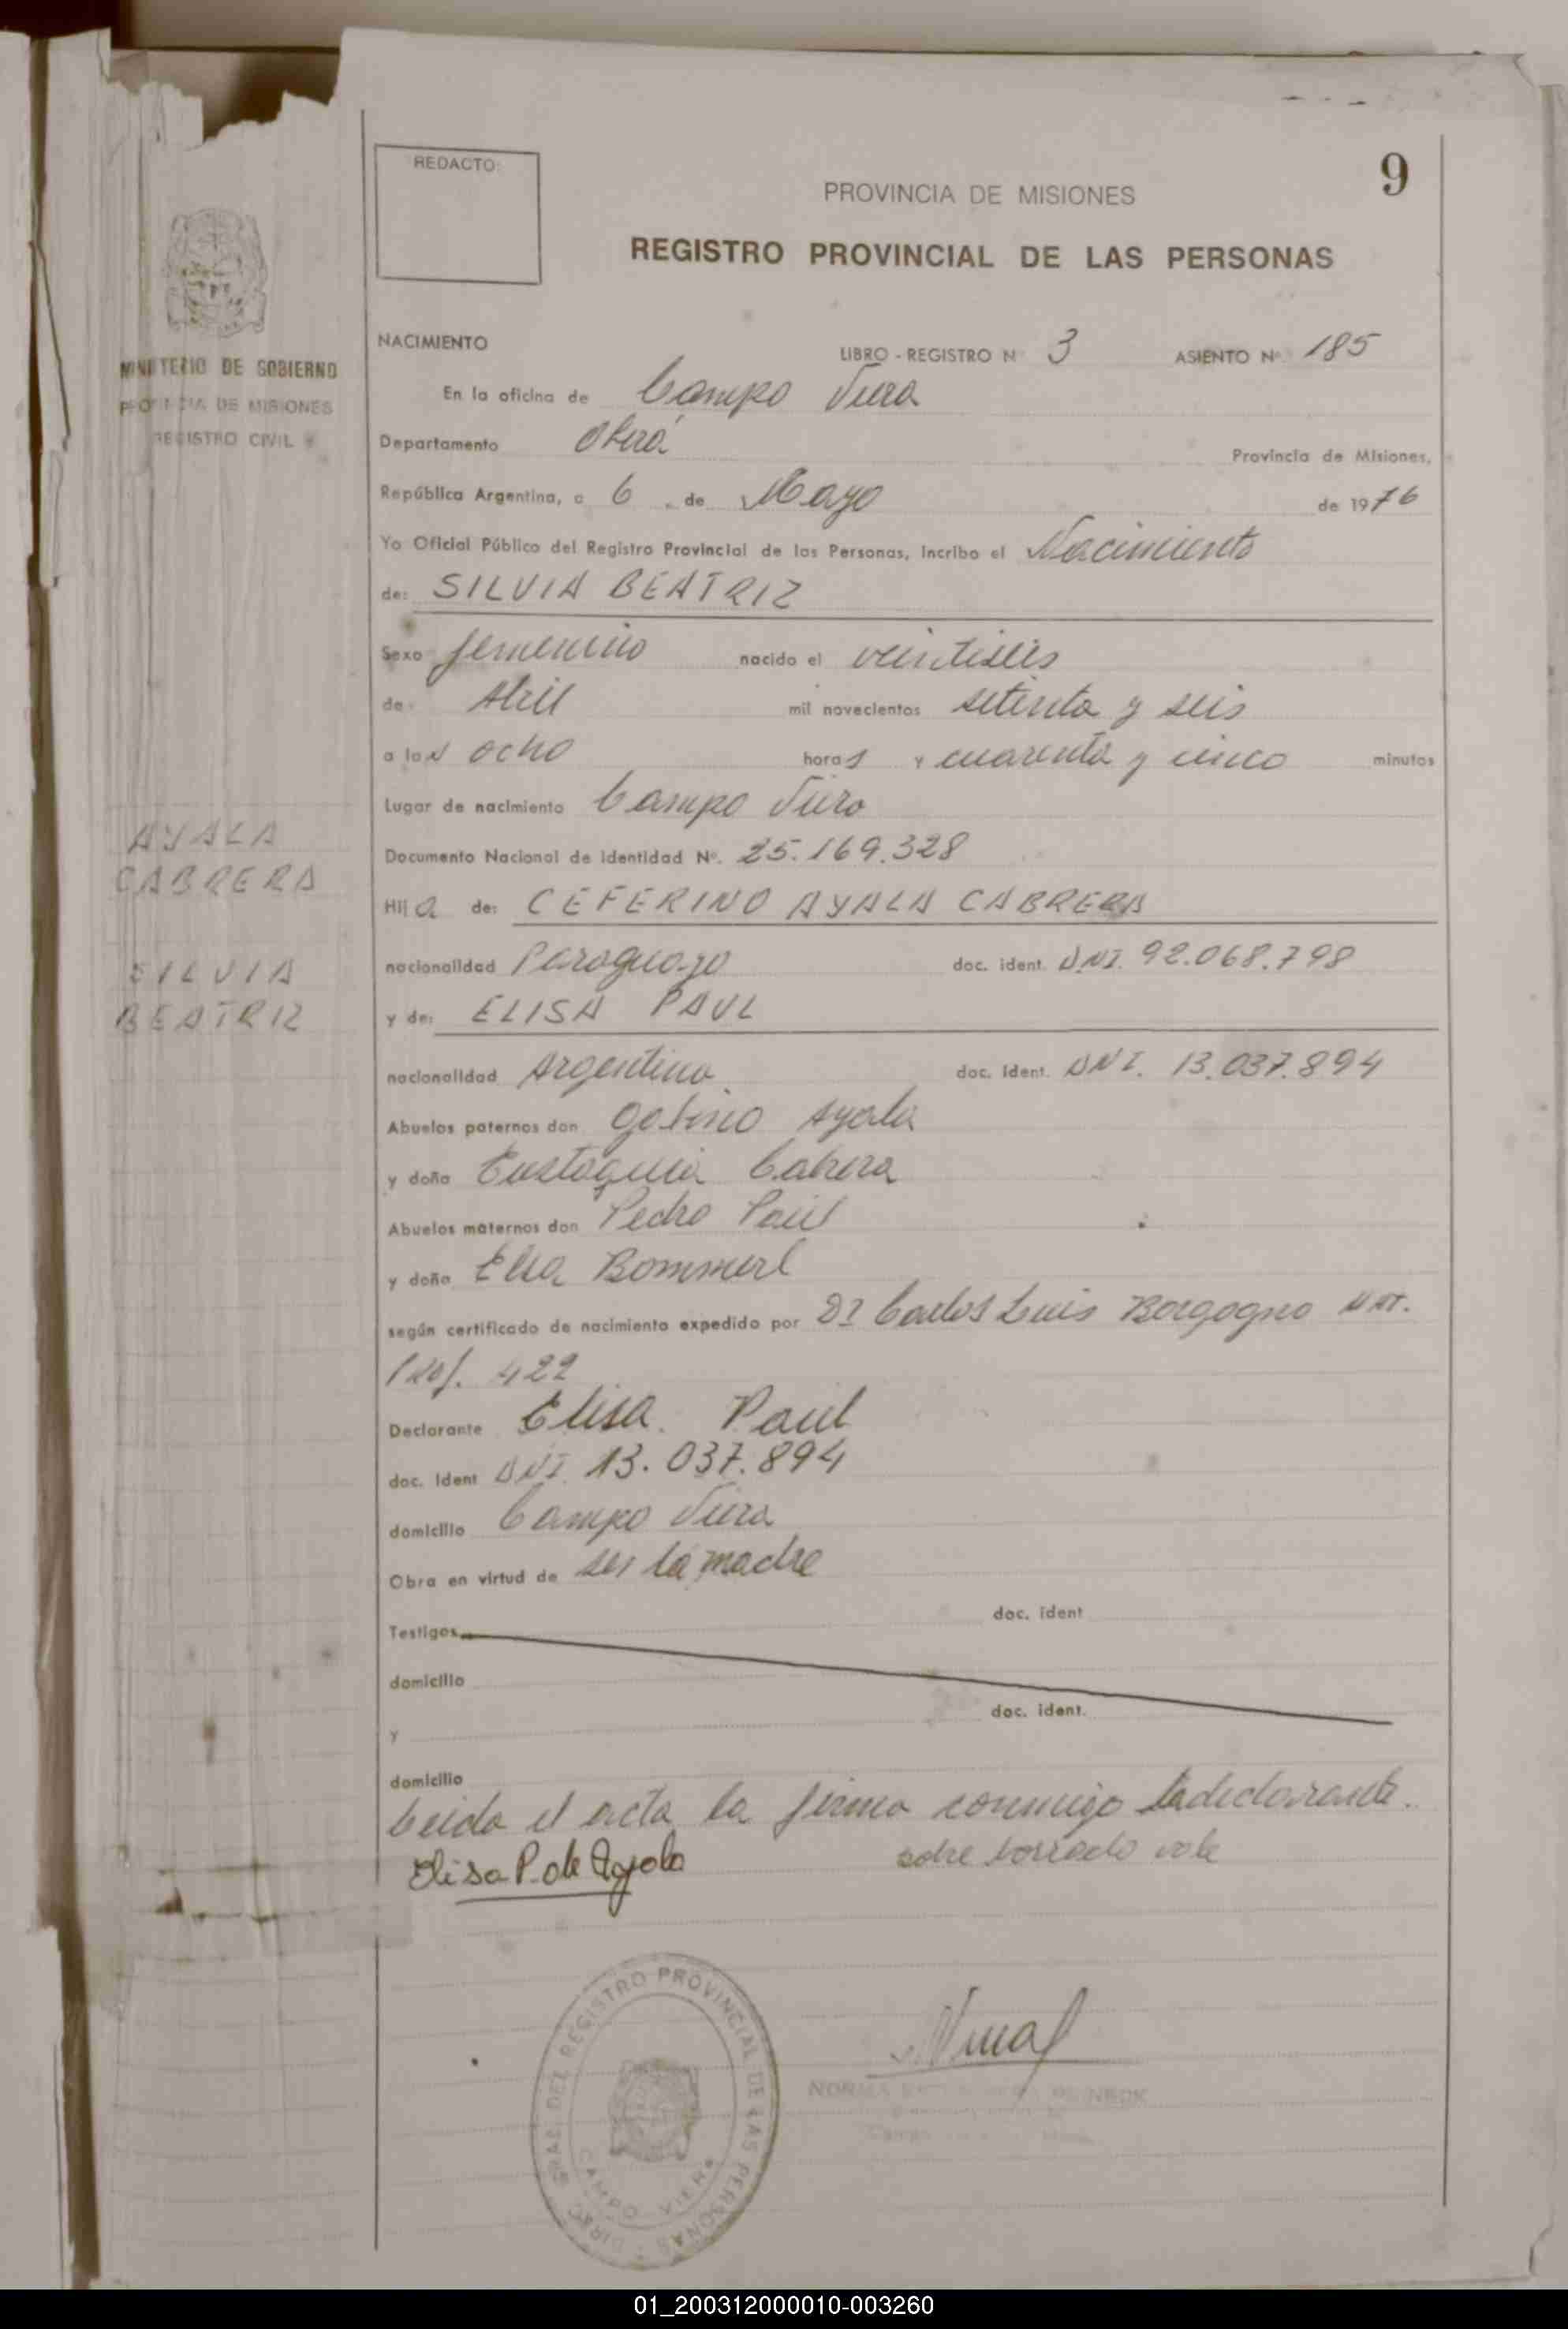 REDACTO:
9
PROVINCIA DE MISIONES
REGISTRO PROVINCIAL DE LAS PERSONAS
MINISTERIO DE GOBIERNO
PROVINCIA DE MISIONES
REGISTRO CIVIL
NACIMIENTO
LIBRO - REGISTRO Nº 3 ASIENTO Nº 185
En la oficina de Campo Viera
Departamento Oberá Provincia de Misiones,
República Argentina, a 6 de Mayo de 1976
Yo Oficial Público del Registro Provincial de las Personas, incribo el Nacimiento
de: SILVIA BEATRIZ
Sexo femenino nacido el veintiseis
de Abril mil novecientos setenta y seis
a las ocho horas y cuarenta y cinco minutos
Lugar de nacimiento Campo Viera
Documento Nacional de identidad Nº. 25.169.328
AYALA
CABRERA
SILVIA
BEATRIZ
Hija de: CEFERINO AYALA CABRERA
nacionalidad Paraguayo doc. ident. DNI. 92.068.798
y de: ELISA PAUL
nacionalidad Argentina doc. ident. DNI. 13.037.894
Abuelos paternos don Gabino Ayala
y doña Eustaquia Cabrera
Abuelos maternos don Pedro Paul
y doña Elsa Bommerl
según certificado de nacimiento expedido por Dr Carlos Luis Borgogno Mat.
Prof. 422
Declarante Elisa Paul
doc. Ident DNI 13.037.894
domicilio Campo Viera
Obra en virtud de ser la madre
Testigos doc. ident
domicilio
y doc. ident.
domicilio
Leida el acta la firma conmigo la declarante.
Elisa P. de Ayala sobre borrado vale
DIREC. GRAL. DEL REGISTRO PROVINCIAL DE LAS PERSONAS
CAMPO VIERA
NORMA
01_200312000010-003260